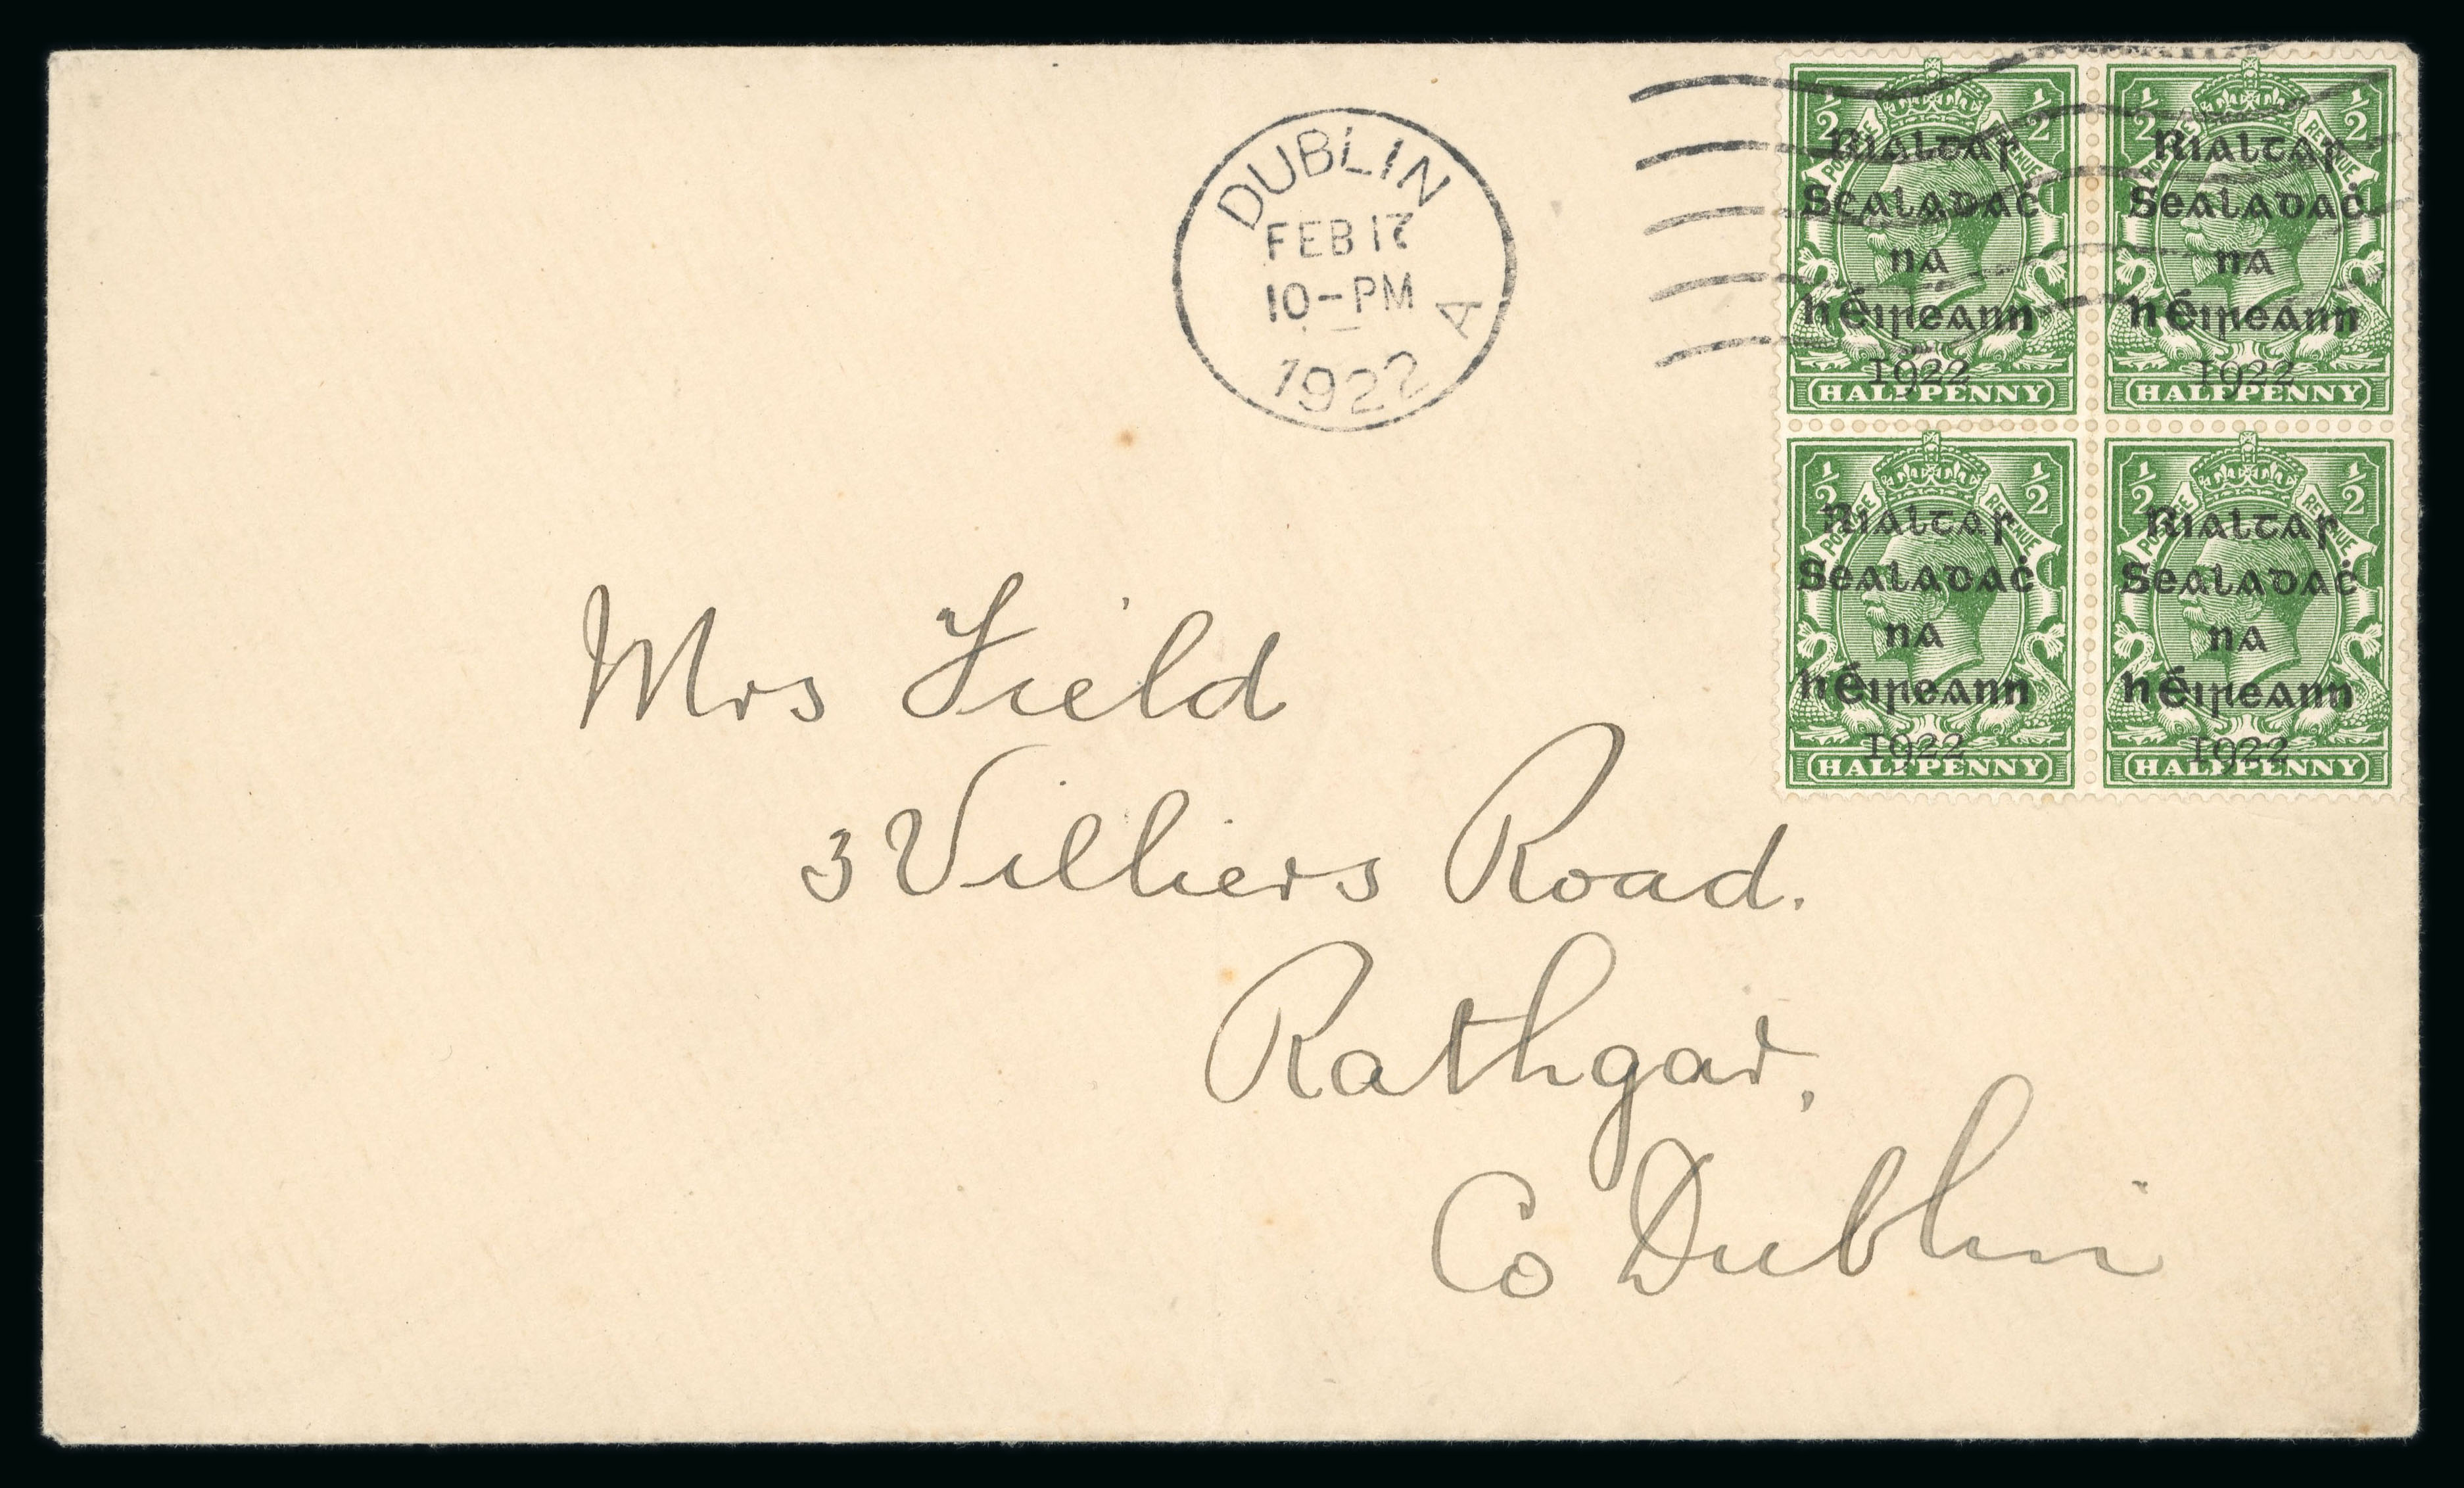 DUBLIN
FEB 17
10-PM
A
1922
½ ½
POSTAGE REVENUE
Rialtas
Sealadaċ
na
hÉireann
1922
HALFPENNY
½ ½
POSTAGE REVENUE
Rialtas
Sealadaċ
na
hÉireann
1922
HALFPENNY
½ ½
POSTAGE REVENUE
Rialtas
Sealadaċ
na
hÉireann
1922
HALFPENNY
½ ½
POSTAGE REVENUE
Rialtas
Sealadaċ
na
hÉireann
1922
HALFPENNY
Mrs Field
3 Villiers Road.
Rathgar,
Co Dublin